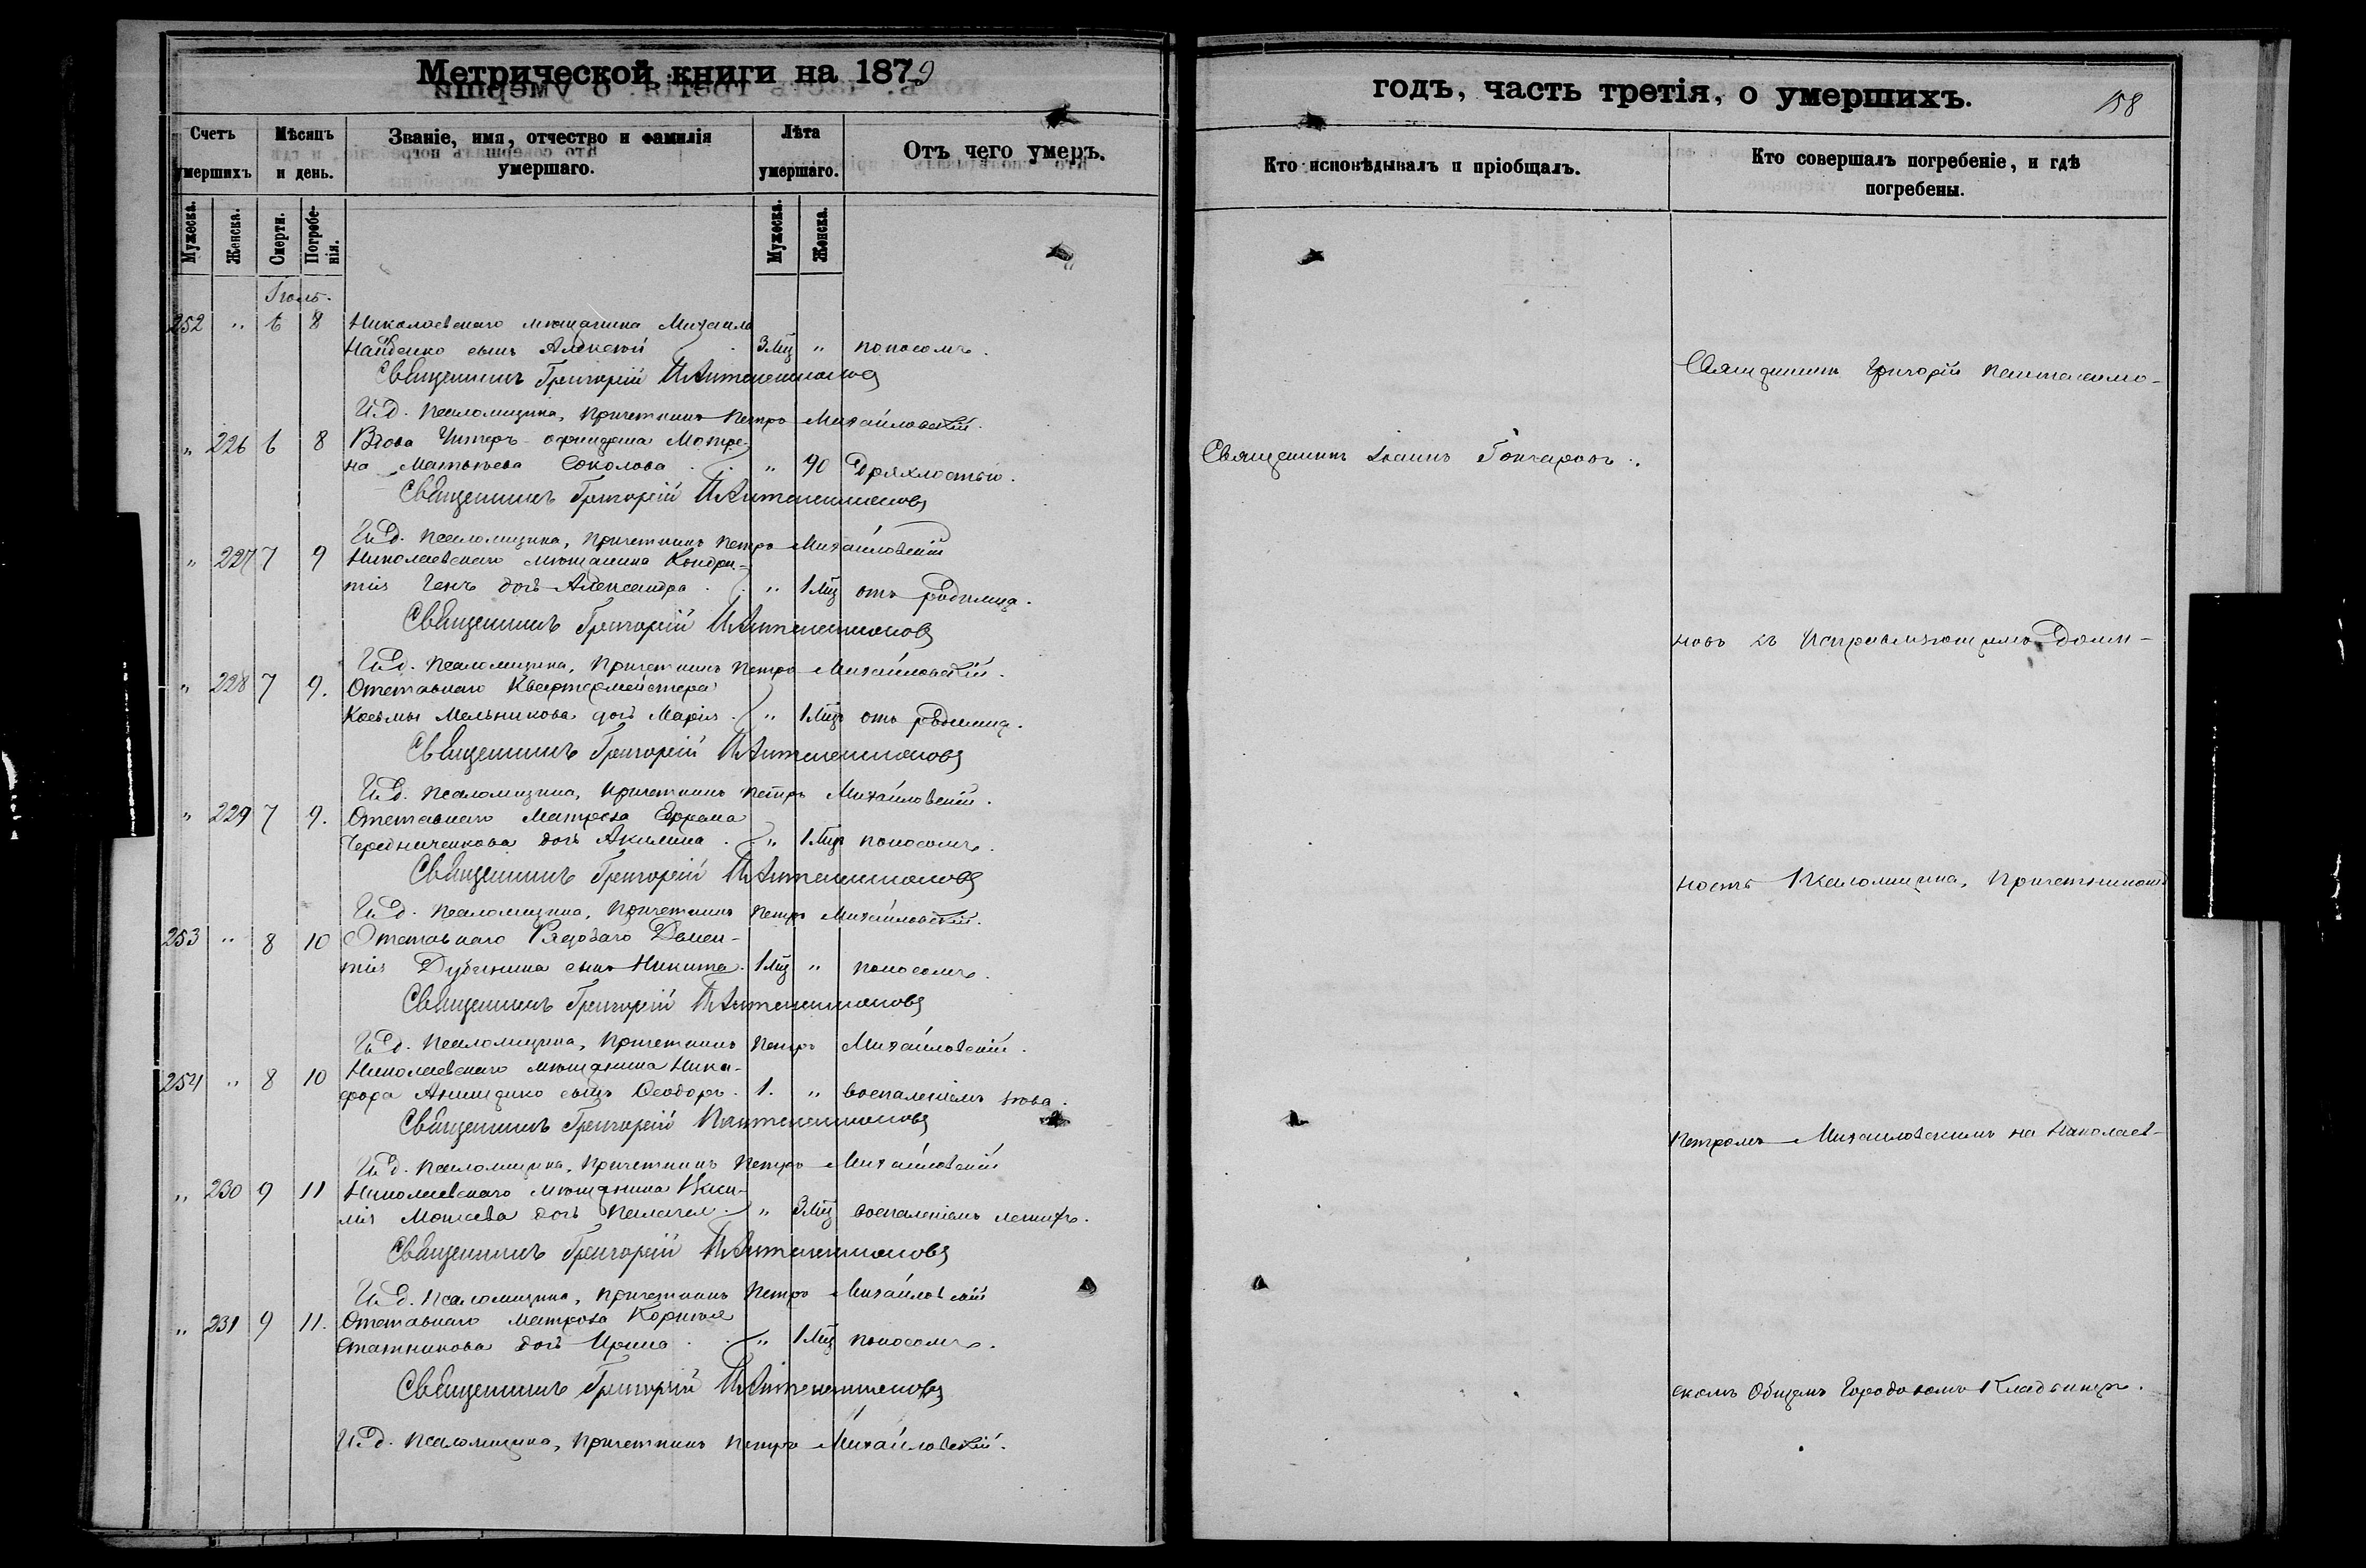 Метрической книги на 1879
годъ, часть третія, о умершихъ.
158
Счетъ умершихъ
Мѣсяцъ и день.
Званіе, имя, отчество и фамилія умершаго.
Лѣта умершаго.
Отъ чего умеръ.
Кто исповѣдывалъ и пріобщалъ.
Кто совершалъ погребеніе, и гдѣ погребены.
Мужеска.
Женска.
Смерти.
Погребенія.
Мужеска.
Женска.
Іюль.
252 " 6 8 Николаевскаго мѣщанина Михаила
Найденко сынъ Алексѣй 3 мц " поносомъ.
Священникъ Григорій Пантелеимоновъ
И.д. псаломщика, причетникъ Петръ Михайловскій.
" 226 6 8 Вдова Унтеръ-офицерша Матре-
на Матвѣева Соколова " 90 Дряхлостью.
Священникъ Григорій Пантелеимоновъ
И.д. псаломщика, причетникъ Петръ Михайловскій
" 227 7 9 Николаевскаго мѣщанина Кондра-
тія дочь Александра " 1 мц отъ родимца.
Священникъ Григорій Пантелеимоновъ
И.д. псаломщика, причетникъ Петръ Михайловскій.
" 228 7 9. Отставнаго Квартермейстера
Косьмы Мельникова дочь Марія " 1 мц отъ родимца.
Священникъ Григорій Пантелеимоновъ
И.д. псаломщика, причетникъ Петръ Михайловскій.
" 229 7 9. Отставнаго Матроса
Чередниченкова дочь Акилина " 1 мц поносомъ.
Священникъ Григорій Пантелеимоновъ
И.д. псаломщика, причетникъ Петръ Михайловскій.
253 " 8 10 Отставнаго Рядоваго Домен-
тія сынъ Никита. 1 мц " поносомъ.
Священникъ Григорій Пантелеимоновъ
И.д. псаломщика, причетникъ Петръ Михайловскій.
254 " 8 10 Николаевскаго мѣщанина Ники-
фора сынъ Ѳеодоръ. 1. " воспаленіемъ
Священникъ Григорій Пантелеимоновъ
И.д. псаломщика, причетникъ Петръ Михайловскій
" 230 9 11 Николаевскаго мѣщанина
дочь Пелагея " 3 мц воспаленіемъ легкихъ.
Священникъ Григорій Пантелеимоновъ
И.д. псаломщика, причетникъ Петръ Михайловскій
" 231 9 11. Отставнаго матроса Корнилія
дочь Ирина " 1 мц поносомъ.
Священникъ Григорій Пантелеимоновъ
И.д. псаломщика, причетникъ Петръ Михайловскій.
Священникъ Іоаннъ Гончаровъ.
Священникъ Григорій Пантелеимо-
новъ съ Исправляющимъ Долж-
ность Псаломщика, Причетникомъ
Петромъ Михайловскимъ на Николаев-
скомъ Общемъ Городскомъ Кладбищѣ.